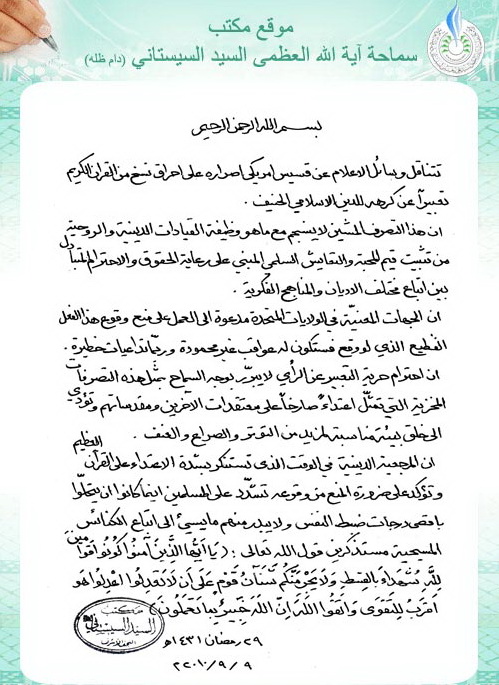 موقع مكتب
سماحة آية الله العظمى السيد السيستاني (دام ظله)
بسم الله الرحمن الرحيم
تتناقل وسائل الاعلام عن قسيس امريكي اصراره على احراق نسخ من القرآن الكريم
تعبيراً عن كرهه للدين الاسلامي الحنيف .
ان هذا التصرف المشين لا ينسجم مع ماهو وظيفة القيادات الدينية والروحية
من تثبيت قيم المحبة والتعايش السلمي المبني على رعاية الحقوق والاحترام المتبادل
بين اتباع مختلف الاديان والمناهج الفكرية .
ان الجهات المعنيّة في الولايات المتحدة مدعوة الى العمل على منع وقوع هذا الفعل
الفظيع الذي لو وقع فستكون له عواقب غير محمودة وربما تداعيات خطيرة .
ان احترام حرية التعبير عن الرأي لا يبرّر بوجه السماح بمثل هذه التصرفات
المخزية التي تمثّل اعتداءً صارخاً على معتقدات الآخرين ومقدساتهم وتؤدي
الى خلق بيئة مناسبة لمزيد من التوتر والصراع والعنف .
ان المرجعية الدينية في الوقت الذي تستنكر بشدة الاعتداء على القرآن العظيم
وتؤكد على ضرورة المنع من وقوعه تشدّد على المسلمين اينما كانوا ان يتحلّوا
باقصى درجات ضبط النفس ولا يبدر منهم ما يسيئ الى اتباع الكنائس
المسيحية مستذكرين قول الله تعالى : (يَا أَيُّهَا الَّذِينَ آمَنُوا كُونُوا قَوَّامِينَ
لِلَّهِ شُهَدَاءَ بِالْقِسْطِ وَلَا يَجْرِمَنَّكُمْ شَنَآنُ قَوْمٍ عَلَى أَنْ لَا تَعْدِلُوا اعْدِلُوا هُوَ
أَقْرَبُ لِلتَّقْوَى وَاتَّقُوا اللَّهَ إِنَّ اللَّهَ خَبِيرٌ بِمَا تَعْمَلُونَ)
مكتب
السيد السيستاني
النجف الاشرف
٢٩ رمضان ١٤٣١هـ
٩ / ٩ / ٢٠١٠